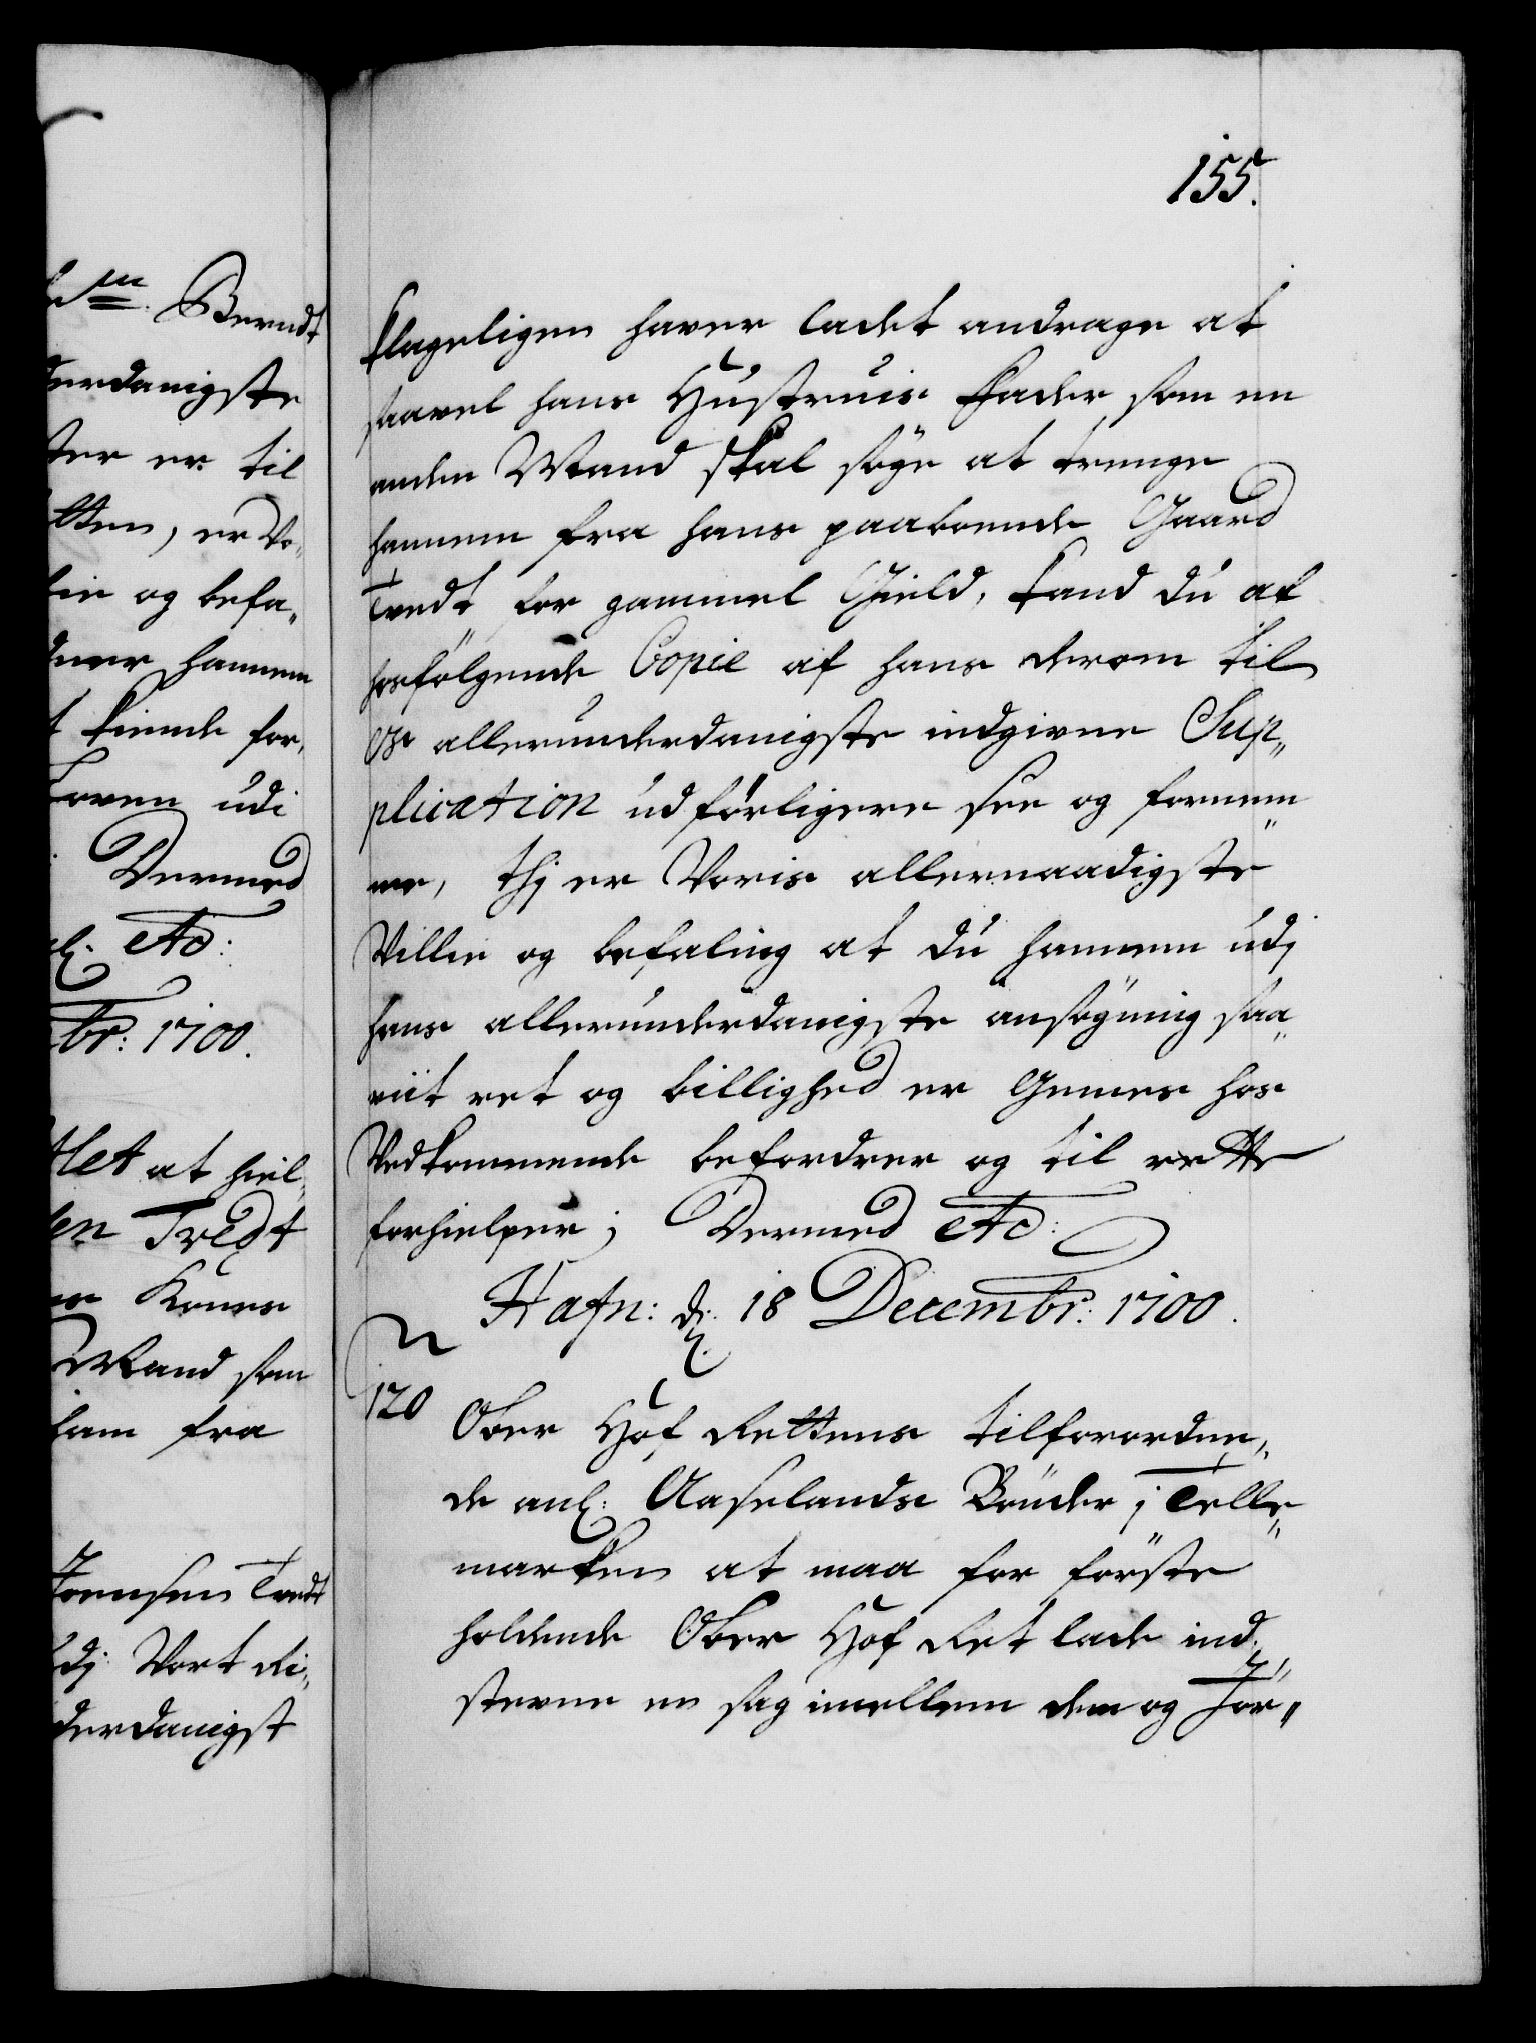 155.
klageligen haver ladet andrage at
saavel hans Hustruis Fader som en
anden Mand skal söge at trenge
hannem fra hans paaboende Gaard
Tvedt for gammel Gield, kand du af
hosfölgende Copie af hans derom til
Os allerunderdanigste indgivne Sup„
plication udförligere see og fornem„
me, thj er Voris allernaadigste
Villie og befaling at du hannem udj
hans allerunderdanigste ansögning saa„
viit ret og billighed er Gemes hos
Vedkommende befordrer og til rette
forhielper; Dermed etc:
Hafn: d: 18 Decembr: 1700.
120
Ober Hof Rettens tilforordne„
de anl: Aaselands Bönder j Telle„
marken at maa for förste
holdende Ober Hof Ret lade ind„
stevne en sag imellem dem og Jör„
Berndt
derdanigste
ter er til
tten, er Vo„
lie og befa„
hannem
kiende for„
Loven udi
Dermed
etc:
br: 1700.
let at hiel„
en Tvedt
Kones
Mand som
ham fra
Joensen Tvedt
udj Vort Ri„
derdanigst